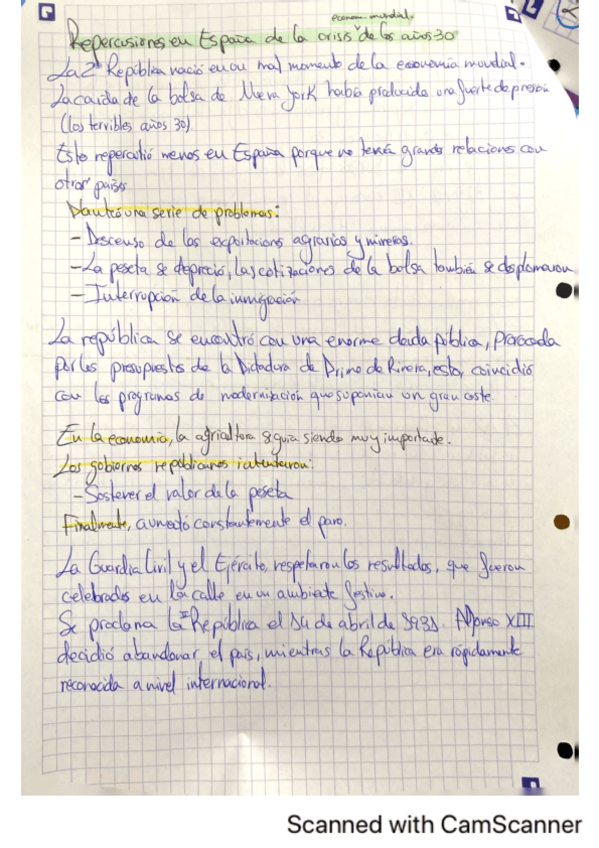 econom. mundial.
Repercusiones en España de la crisis de los años 30
La 2ª República nació en un mal momento de la economía mundial.
La caída de la bolsa de Nueva York había producido una fuerte depresión
(los terribles años 30)
Esto repercutió menos en España porque no tenía grandes relaciones con
otros países
una serie de problemas:
- Descenso de las exportaciones agrarias y mineras.
- La peseta se depreció, las cotizaciones de la bolsa también se desplomaron
- Interrupción de la inmigración
La república se encontró con una enorme deuda pública, provocada
por los presupuestos de la Dictadura de Primo de Rivera, esto, coincidió
con los programas de modernización que suponían un gran coste.
En la economía, la agricultura seguía siendo muy importante.
Los gobiernos republicanos intentaron:
- Sostener el valor de la peseta
Finalmente, aumentó constantemente el paro.
La Guardia Civil y el Ejército, respetaron los resultados, que fueron
celebrados en la calle en un ambiente festivo.
Se proclama la IIª República el 14 de abril de 1931. Alfonso XIII
decidió abandonar el país, mientras la República era rápidamente
reconocida a nivel internacional.
Scanned with CamScanner